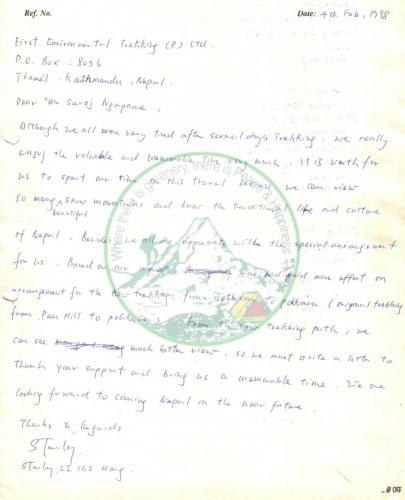 Ref. No.
Date: 4th Feb, 1998
First Environmental Trekking (P) Ltd.
P.O. Box : 8036
Thamel Kathmandu, Nepal.
Dear Mr Saroj
Although we all were very tired after several days trekking, we really
enjoy the valuable and memorable time very much. It is worth for
us to spent our time on this travel because we can view
so many snow mountains and know the traditional life and culture
beautiful
of Nepal. Besides, we all appreciate with the special arrangement
for us. Based on our you had paid more effort on
arrangement for the new trekking from to pokhara (original trekking
from Pan Hill to pokhara) from the new trekking path, we
can see much better view. so we must write a letter to
thank your support and bring us a memorable time. We are
looking forward to coming Nepal in the near future.
Thanks & Regards
Stanley
Stanley, LI CHI Hang.
Where there is greenery, there is Peace & Happiness